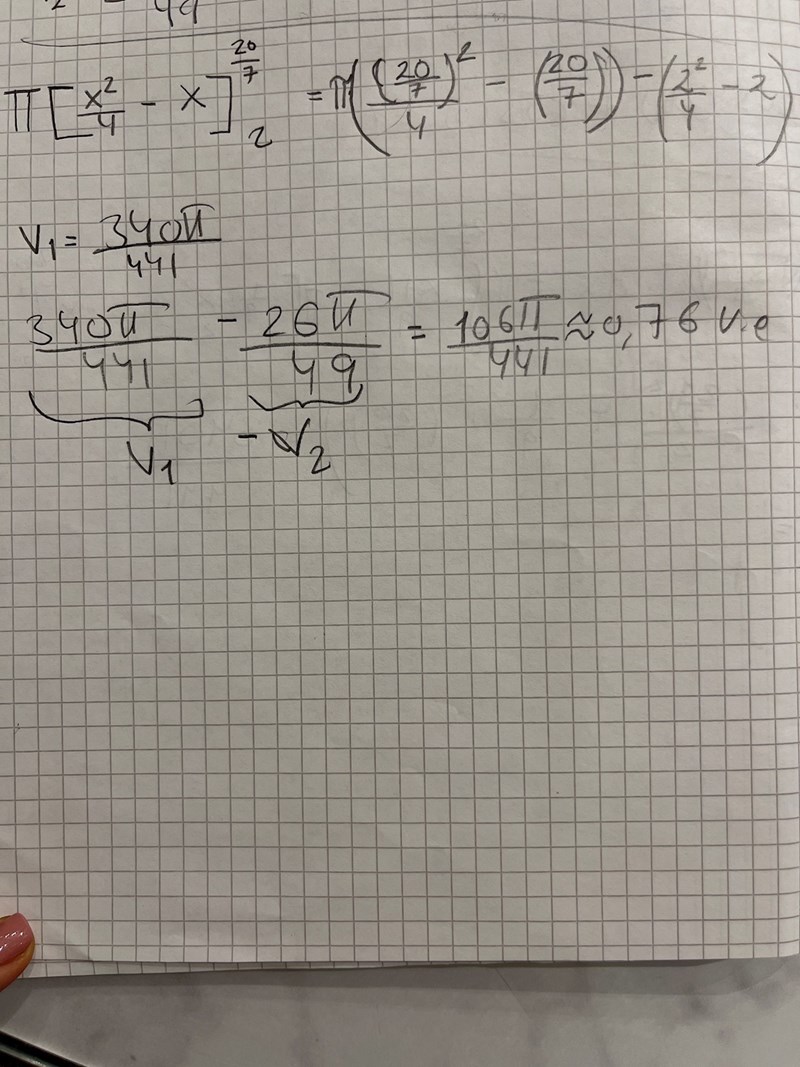 π[x²/4 - x]₂^(20/7) = π(((20/7)²/4 - (20/7)) - (2²/4 - 2)
V₁ = 340π/441
340π/441 - 26π/49 = 106π/441 ≈ 0,76 v.e
V₁ - V₂